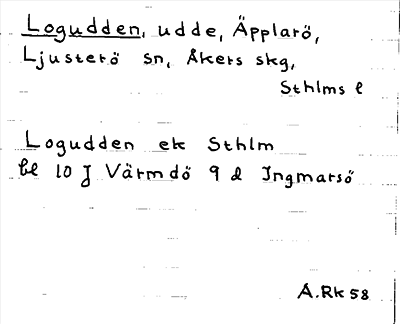 Logudden, udde, Äpplarö,
Ljusterö sn, Åkers skg,
Sthlms l
Logudden ek Sthlm
bl 10 J Värmdö 9 d Ingmarsö
A.Rk 58